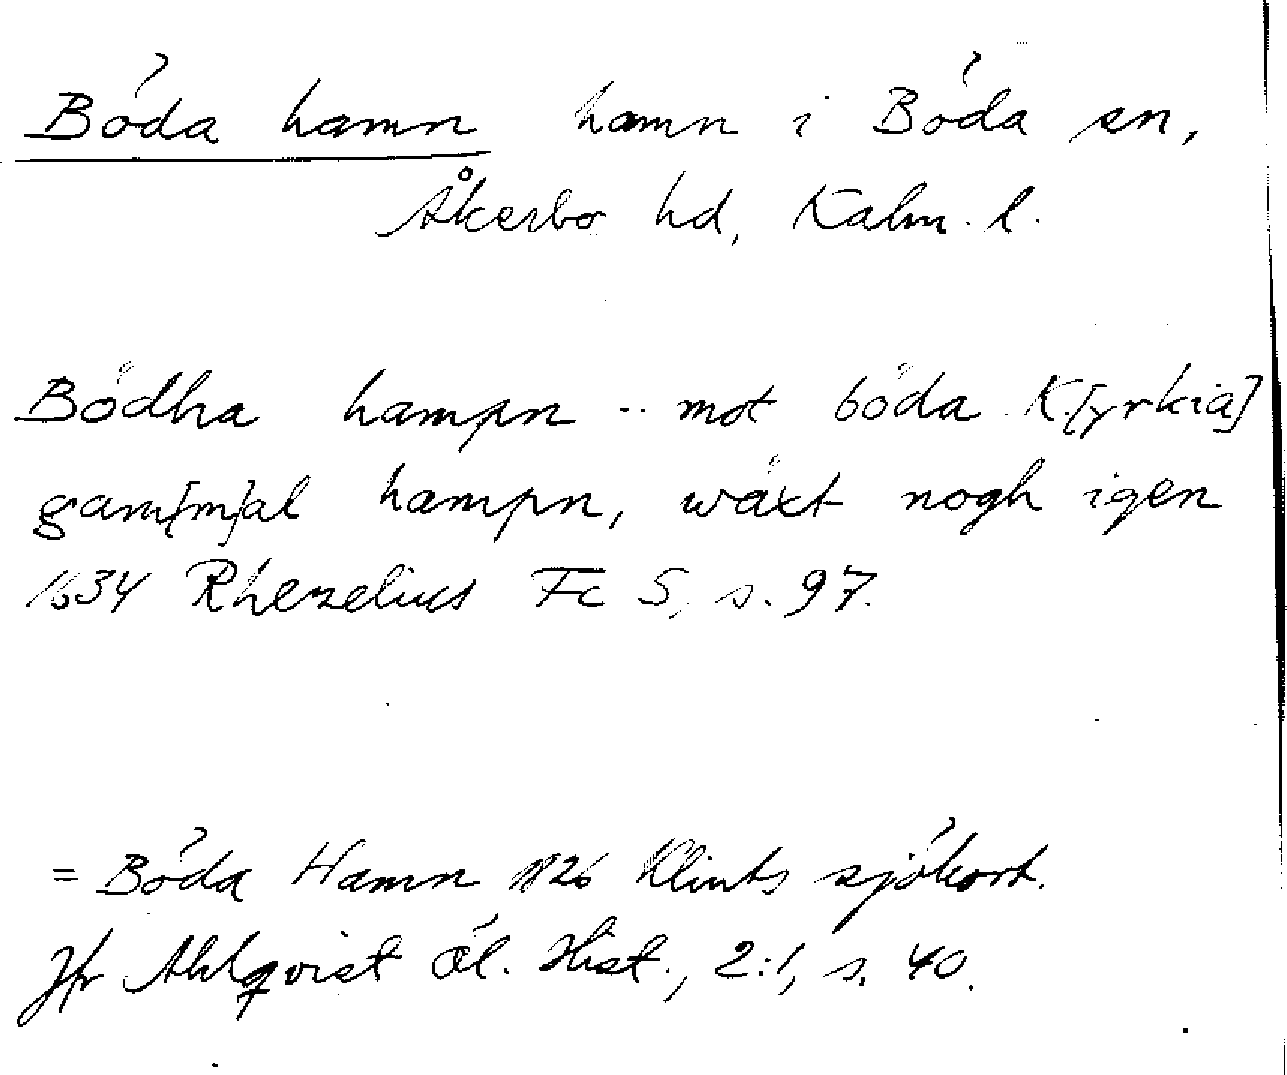 Böda hamn hamn i Böda sn,
Åkerbo hd, Kalm. l.
Bödha hampn .. mot böda K[yrkia]
gam[m]al hampn, wäxt nogh igen
1634 Rhezelius Fc 5, s. 97.
= Böda Hamn 1826 Klints sjökort.
Jfr Ahlqvist Öl. Hist., 2:1, s. 40.